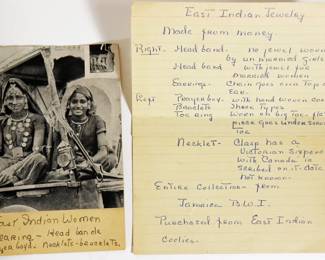 East Indian Jewelry
Made from money
Right. Head band - no jewel worn
by unmarried girls
Head band with jewel for
married women
Earrings - Chain goes over top of
Ear.
Left Prayer boy - with hand woven cord
Bracelets three types
Toe ring Worn on big toe - flat
piece goes under
toe
Necklet - Clasp has a
Victorian Sixpence
with Canada in
scribed on it - date
Not known -
Entire Collection - from
Jamaica B.W.I.
Purchased from East Indian
Coolies.
East Indian Women
wearing - Head bands
Prayer boxs. Necklets - bracelets.